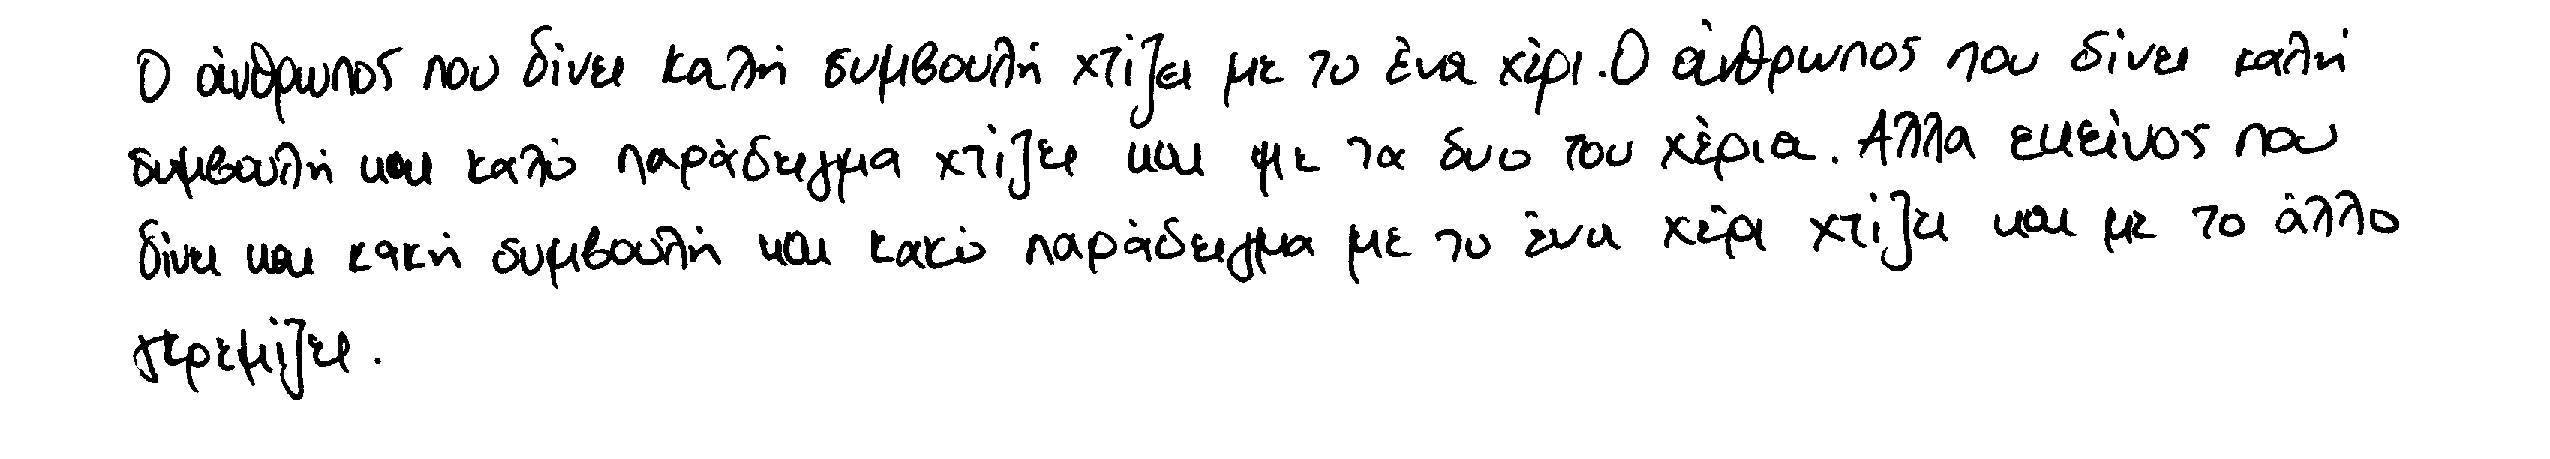 Ο άνθρωπος που δίνει καλή συμβουλή χτίζει με το ένα χέρι. Ο άνθρωπος που δίνει καλή
συμβουλή και καλό παράδειγμα χτίζει και με τα δυο του χέρια. Αλλα εκείνος που
δίνει και κακή συμβουλή και κακό παράδειγμα με το ένα χέρι χτίζει και με το άλλο
γκρεμίζει.